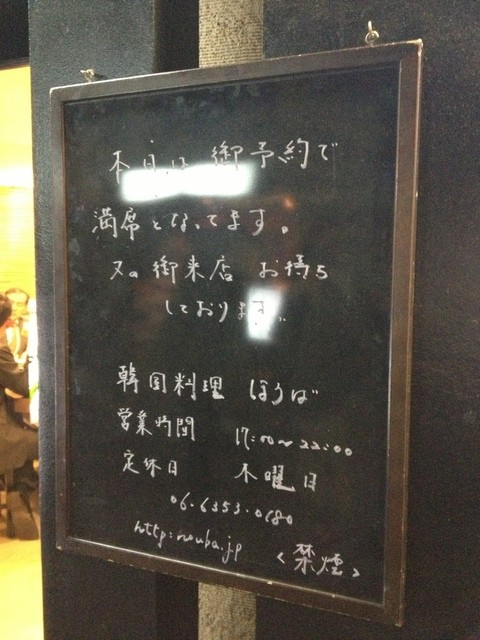 本日は 御予約で
満席となってます。
又の 御来店 お待ち
しております。
韓国料理 ほうば
営業時間 17:00~22:00
定休日 木曜日
06.6353.0180
http:
<禁煙>